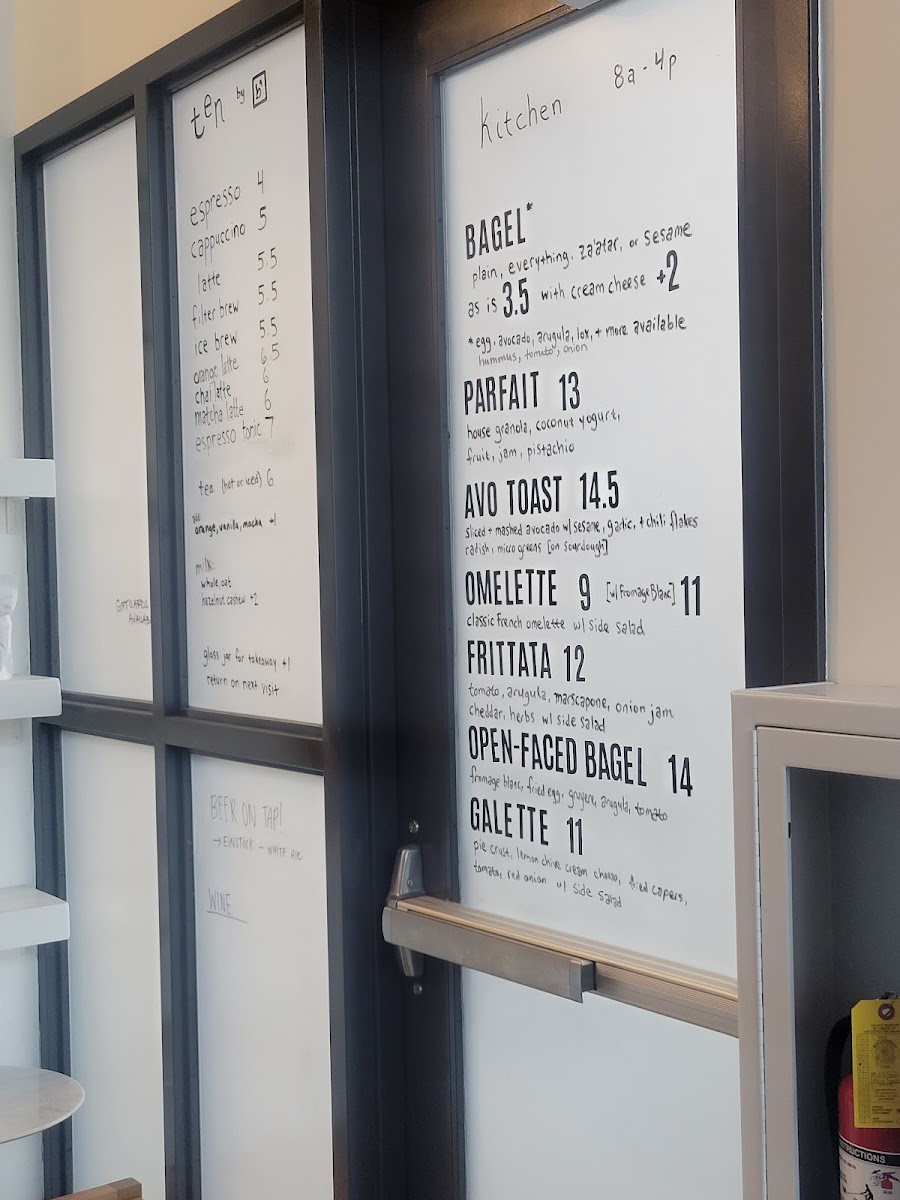 GIFTCARDS
AVAILABLE
ten by b
espresso 4
cappuccino 5
latte 5.5
filter brew 5.5
ice brew 5.5
orange latte 6.5
chai latte 6
matcha latte 6
espresso tonic 7
tea (hot or iced) 6
add:
orange, vanilla, mocha +1
milk:
whole, oat
hazelnut cashew +2
glass jar for takeaway +1
return on next visit
BEER ON TAP!
→ EINSTÖCK - WHITE ALE
WINE
kitchen 8a - 4p
BAGEL*
plain, everything, za'atar, or sesame
as is 3.5 with cream cheese +2
*egg, avocado, arugula, lox, + more available
hummus, tomato, onion
PARFAIT 13
house granola, coconut yogurt,
fruit, jam, pistachio
AVO TOAST 14.5
sliced + mashed avocado w/ sesame, garlic, + chili flakes
radish, micro greens [on sourdough]
OMELETTE 9 [w/ Fromage Blanc] 11
classic French omelette w/ side salad
FRITTATA 12
tomato, arugula, marscapone, onion jam
cheddar, herbs w/ side salad
OPEN-FACED BAGEL 14
fromage blanc, fried egg, gruyere, arugula, tomato
GALETTE 11
pie crust, lemon chive cream cheese, fried capers,
tomato, red onion w/ side salad
INSTRUCTIONS